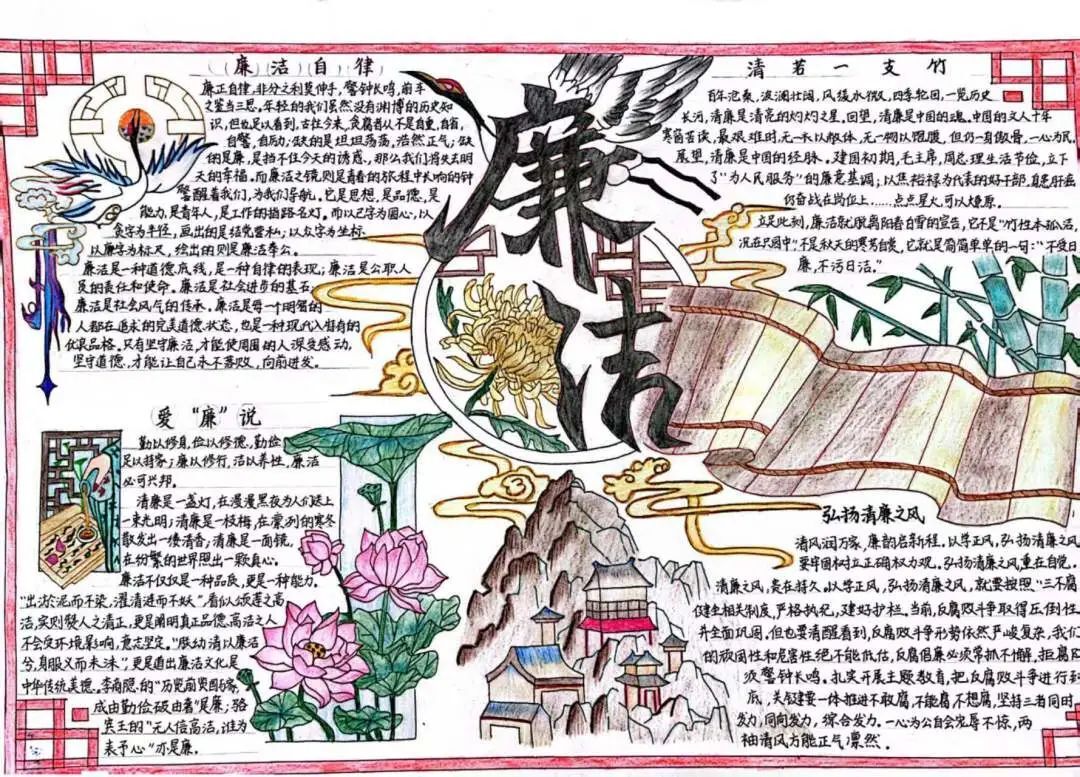 廉洁自律
廉正自律,非分之利莫伸手,警钟长鸣,前车
之鉴当三思。年轻的我们虽然没有渊博的历史知
识,但也足以看到,古往今来,贪腐者从不是自重,自省,
自警,自励;缺的是坦坦荡荡,浩然正气;缺
的是廉,是挡不住今天的诱惑,那么我们将失去明
天的幸福。而廉洁之镜,则是青春的旅程中长响的钟
警醒着我们,为我们导航。它是思想,是品德,是
能力,是青年人,是工作的指路名灯。而以己字为圆心,以
贪字为半径,画出的是结党营私;以众字为坐标
以廉字为标尺,绘出的则是廉洁奉公。
廉洁是一种道德底线,是一种自律的表现;廉洁是公职人
员的责任和使命。廉洁是社会进步的基石,
廉洁是社会风气的传承。廉洁是每一个明智的
人都在追求的完美道德状态,也是一种现代人独有的
优良品格。只有坚守廉洁,才能使周围的人深受感动,
坚守道德,才能让自己永不落败,向前进发。
廉洁
清若一支竹
百年沧桑,波澜壮阔,风缓水微,四季轮回,一览历史
长河,清廉是清亮的灼灼之星。回望,清廉是中国的魂。中国的文人十年
寒窗苦读,最艰难时,无一禾以蔽体,无一物以饱腹,但仍一身傲骨,一心为民。
展望,清廉是中国的经脉。建国初期,毛主席,周总理生活节俭,立下
了“为人民服务”的廉党基调;以焦裕禄为代表的好干部,身患肝癌
仍奋战在岗位上……点点星火,可以燎原。
立足此刻,廉洁就脱离阳春白雪的宣告,它不是“竹性本孤洁,
况在只园中”,不是秋天的寒蛩自哀,它就是简简单单的一句:“不受曰
廉,不污曰洁。”
爱“廉”说
勤以修身,俭以修德,勤俭
足以持家;廉以修行,洁以养性,廉洁
必可兴邦。
清廉是一盏灯,在漫漫黑夜为人们送上
一束光明;清廉是一枝梅,在凛冽的寒冬
散发出一缕清香;清廉是一面镜,
在纷繁的世界照出一颗真心。
廉洁不仅仅是一种品质,更是一种能力。
“出淤泥而不染,濯清涟而不妖”,看似颂莲之高
洁,实则赞人之清正,更是阐明真正品德高洁之人
不会受环境影响,意志坚定。“朕幼清以廉洁
兮,身服义而未沬”,更是道出廉洁文化是
中华传统美德。李商隐的“历览前贤国与家,
成由勤俭破由奢”是廉;骆
宾王的“无人信高洁,谁为
表予心”亦是廉。
弘扬清廉之风
清风润万家,廉韵启新程。以学正风,弘扬清廉之风
要牢固树立正确权力观。弘扬清廉之风,重在自觉。
清廉之风,贵在持久。以学正风,弘扬清廉之风,就要按照“三不腐
健全相关制度,严格执纪,建好护栏。当前,反腐败斗争取得压倒性
并全面巩固,但也要清醒看到,反腐败斗争形势依然严峻复杂,我们
的顽固性和危害性绝不能低估,反腐倡廉必须常抓不懈,拒腐防
须警钟长鸣。扎实开展主题教育,把反腐败斗争进行到
底,关键要一体推进不敢腐,不能腐不想腐,坚持三者同时
发力,同向发力,综合发力。一心为公自会宠辱不惊,两
袖清风方能正气凛然。